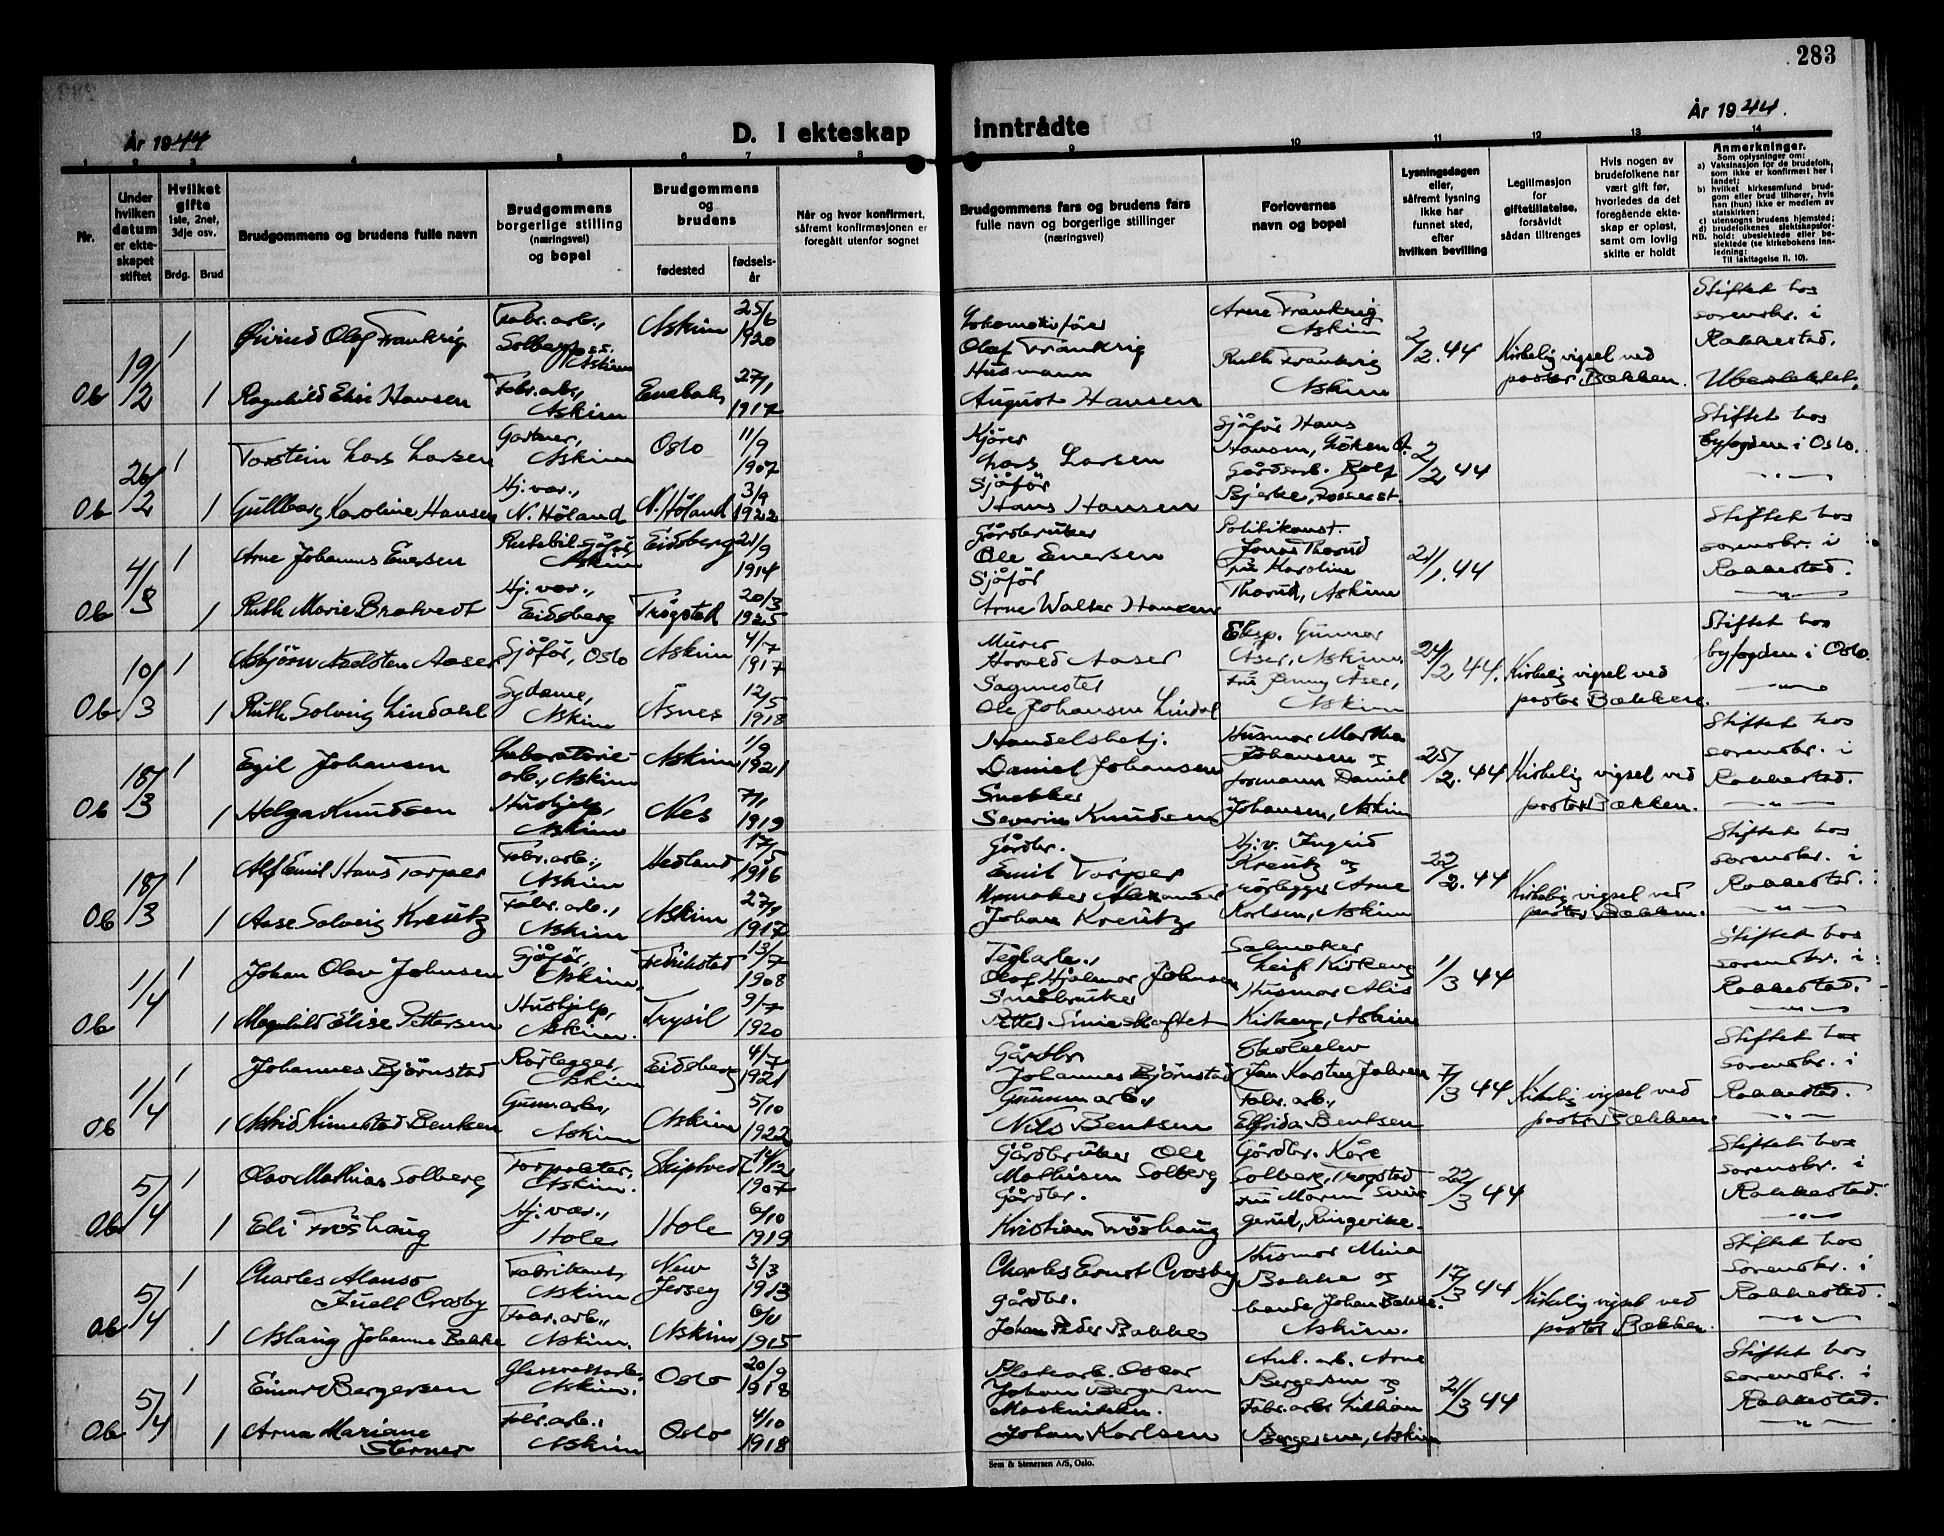 283
År 1944
D. I ekteskap
inntrådte
År 1944.
1 2 3 4 5 6 7 8
9 10 11 12 13 14
Nr.
Under hvilken datum er ekteskapet stiftet
Hvilket gifte 1ste, 2net, 3dje osv.
Brdg. Brud
Brudgommens og brudens fulle navn
Brudgommens borgerlige stilling (næringsvei) og bopel
Brudgommens og brudens
fødested
fødselsår
Når og hvor konfirmert, såfremt konfirmasjonen er foregått utenfor sognet
Brudgommens fars og brudens fars fulle navn og borgerlige stillinger (næringsvei)
Forlovernes navn og bopel
Lysningsdagen eller, såfremt lysning ikke har funnet sted, efter hvilken bevilling
Legitimasjon for giftetillatelse, forsåvidt sådan tiltrenges
Hvis nogen av brudefolkene har vært gift før, hvorledes da det foregående ekteskap er opløst, samt om lovlig skifte er holdt
Anmerkninger.
Som oplysninger om:
a) Vaksinasjon for de brudefolk, som ikke er konfirmert her i landet;
b) hvilket kirkesamfund brudgom eller brud tilhører, hvis han (hun) ikke er medlem av statskirken;
c) utensogns brudens hjemsted;
d) brudefolkenes slektskapsforhold: ubeslektede eller beslektede (se kirkebokens innledning;
NB. Til iakttagelse II. 10).
Ob 19/2 1 Øivind Olaf Frankrig Fabr.arb., Solbergfoss, Askim Askim 25/6 1920 Lokomotivfører Olaf Frankrig Arne Frankrig Askim 2/2.44 Kirkelig vigsel ved pastor Bækken. Stiftet hos sorenskr. i Rakkestad.
1 Ragnhild Elise Hansen Fabr.arb., Askim Enebak 27/1 1917 Husmann August Hansen Ruth Frankrig Askim Ubeslektet.
Ob 26/2 1 Torstein Lars Larsen Gartner, Askim Oslo 11/9 1907 Kjører Lars Larsen Sjåfør Hans Hansen, Löken 2/2 44 Stiftet hos byfogden i Oslo.
1 Gullborg Karoline Hansen Hj.vær., N. Høland N. Høland 3/9 1922 Sjåför Hans Hansen Gårdsarb. Rolf Bjerke, — " —
Ob 4/3 1 Arne Johannes Enersen Rutebilsjåför, Askim Eidsberg 21/9 1914 Gårdbruker Ole Enersen Politikonst. Jonas Thorud 21/1.44 Stiftet hos sorenskr. i Rakkestad.
1 Ruth Marie Bratvedt Hj.vær., Eidsberg Trøgstad 20/3 1925 Sjåför Arne Walter Hansen fru Karoline Thorud, Askim — " —
Ob 10/3 1 Asbjörn Adelsten Aaser Sjåför, Oslo Askim 4/7 1917 Murer Harald Aaser Eksp. Gunnar Aser, Askim. 24/2 44. Kirkelig vigsel ved pastor Bækken. Stiftet hos byfogden i Oslo.
1 Ruth Solveig Lindahl Sydame, Askim Åsnes 12/5 1918 Sagmester Ole Johansen Lindal fru Jenny Åser, Askim — " —
Ob 18/3 1 Egil Johansen Laboratorie-arb., Askim Askim 1/9 1921 Handelsbetj. Daniel Johansen Husmor Martha Johansen og 25/2.44 Kirkelig vigsel ved pastor Bækken. Stiftet hos sorenskr. i Rakkestad.
1 Helga Knudsen Hushjelp, Askim Nes 7/1 1919 Snekker Severin Knudsen formann Daniel Johansen, Askim — " —
Ob 18/3 1 Alf Emil Hans Torper Fabr.arb., Askim Hedland 17/5 1916 Gårdbr. Emil Torper Hj.v. Ingrid Kreutz og 22/2.44 Kirkelig vigsel ved pastor Bækken. Stiftet hos sorenskr. i Rakkestad.
1 Aase Solveig Kreutz Fabr.arb., Askim Askim 27/9 1917 Urmaker Alexander Johan Kreutz rörlegger Arne Karlsen, Askim — " —
Ob 1/4 1 Johan Olav Johnsen Sjåför, Askim. Fredrikstad 13/7 1908 Teglarb., Olaf Hjalmar Johnsen Salmaker Leif Kirkeng 1/3 44 Stiftet hos sorenskr. i Rakkestad.
1 Magnhild Elise Pettersen Hushjelp, Askim. Trysil 9/7 1920 Småbruker Petter Husmor Alis Kirkeng, Askim — " —
Ob 1/4 1 Johannes Bjørnstad Rørlegger, Askim Eidsberg 4/7 1921 Gårdbr. Johannes Bjørnstad Skoleelev Jan Karsten Johnsen 7/3 44 Kirkelig vigsel ved pastor Bækken. Stiftet hos sorenskr. i Rakkestad.
1 Astrid Kimestad Bentsen Gum.arb., Askim Askim 5/10 1922 Gummiarb., Nils Bentsen Fabr.arb., Elfrida Bentsen — " —
Ob 5/4 1 Olav Mathias Solberg Forpakter, Askim. Skiptvedt 14/12 1907 Gårdbruker Ole Mathisen Solberg Gårdbr. Kåre Solberg, Trøgstad 22/3 44 Stiftet hos sorenskr. i Rakkestad.
1 Eli Frøshaug Hj.vær., Hole Hole 6/10 1919 Gårdbr. Kristian Frøshaug fru Maren gerud, Ringerike. — " —
Ob 5/4 1 Charles Alonso Juell Crosby Fabrikant, Askim New Jersey 3/3 1913 Charles Ernst Crosby Husmor Mina Bakke og 17/3 44 Kirkelig vigsel ved pastor Bækken. Stiftet hos sorenskr. i Rakkestad.
1 Aslaug Johanne Bakke Fabr.arb., Askim. Askim 6/11 1915 Gårdbr. Johan Peder Bakke bonde Johan Bakke. Askim. — " —
Ob 5/4 1 Einar Bergersen Askim. Oslo 20/9 1918 Oscar Johan Bergersen Anl.arb. Arne Bergersen og 21/3 44 Stiftet hos sorenskr. i Rakkestad.
1 Arna Mariane Sterner Fabr.arb., Askim Oslo 4/10 1918 Maskinitekn. Johan Karlsen Fabr.arb. Lillian Bergersen, Askim — " —
Sem & Stenersen A/S, Oslo.